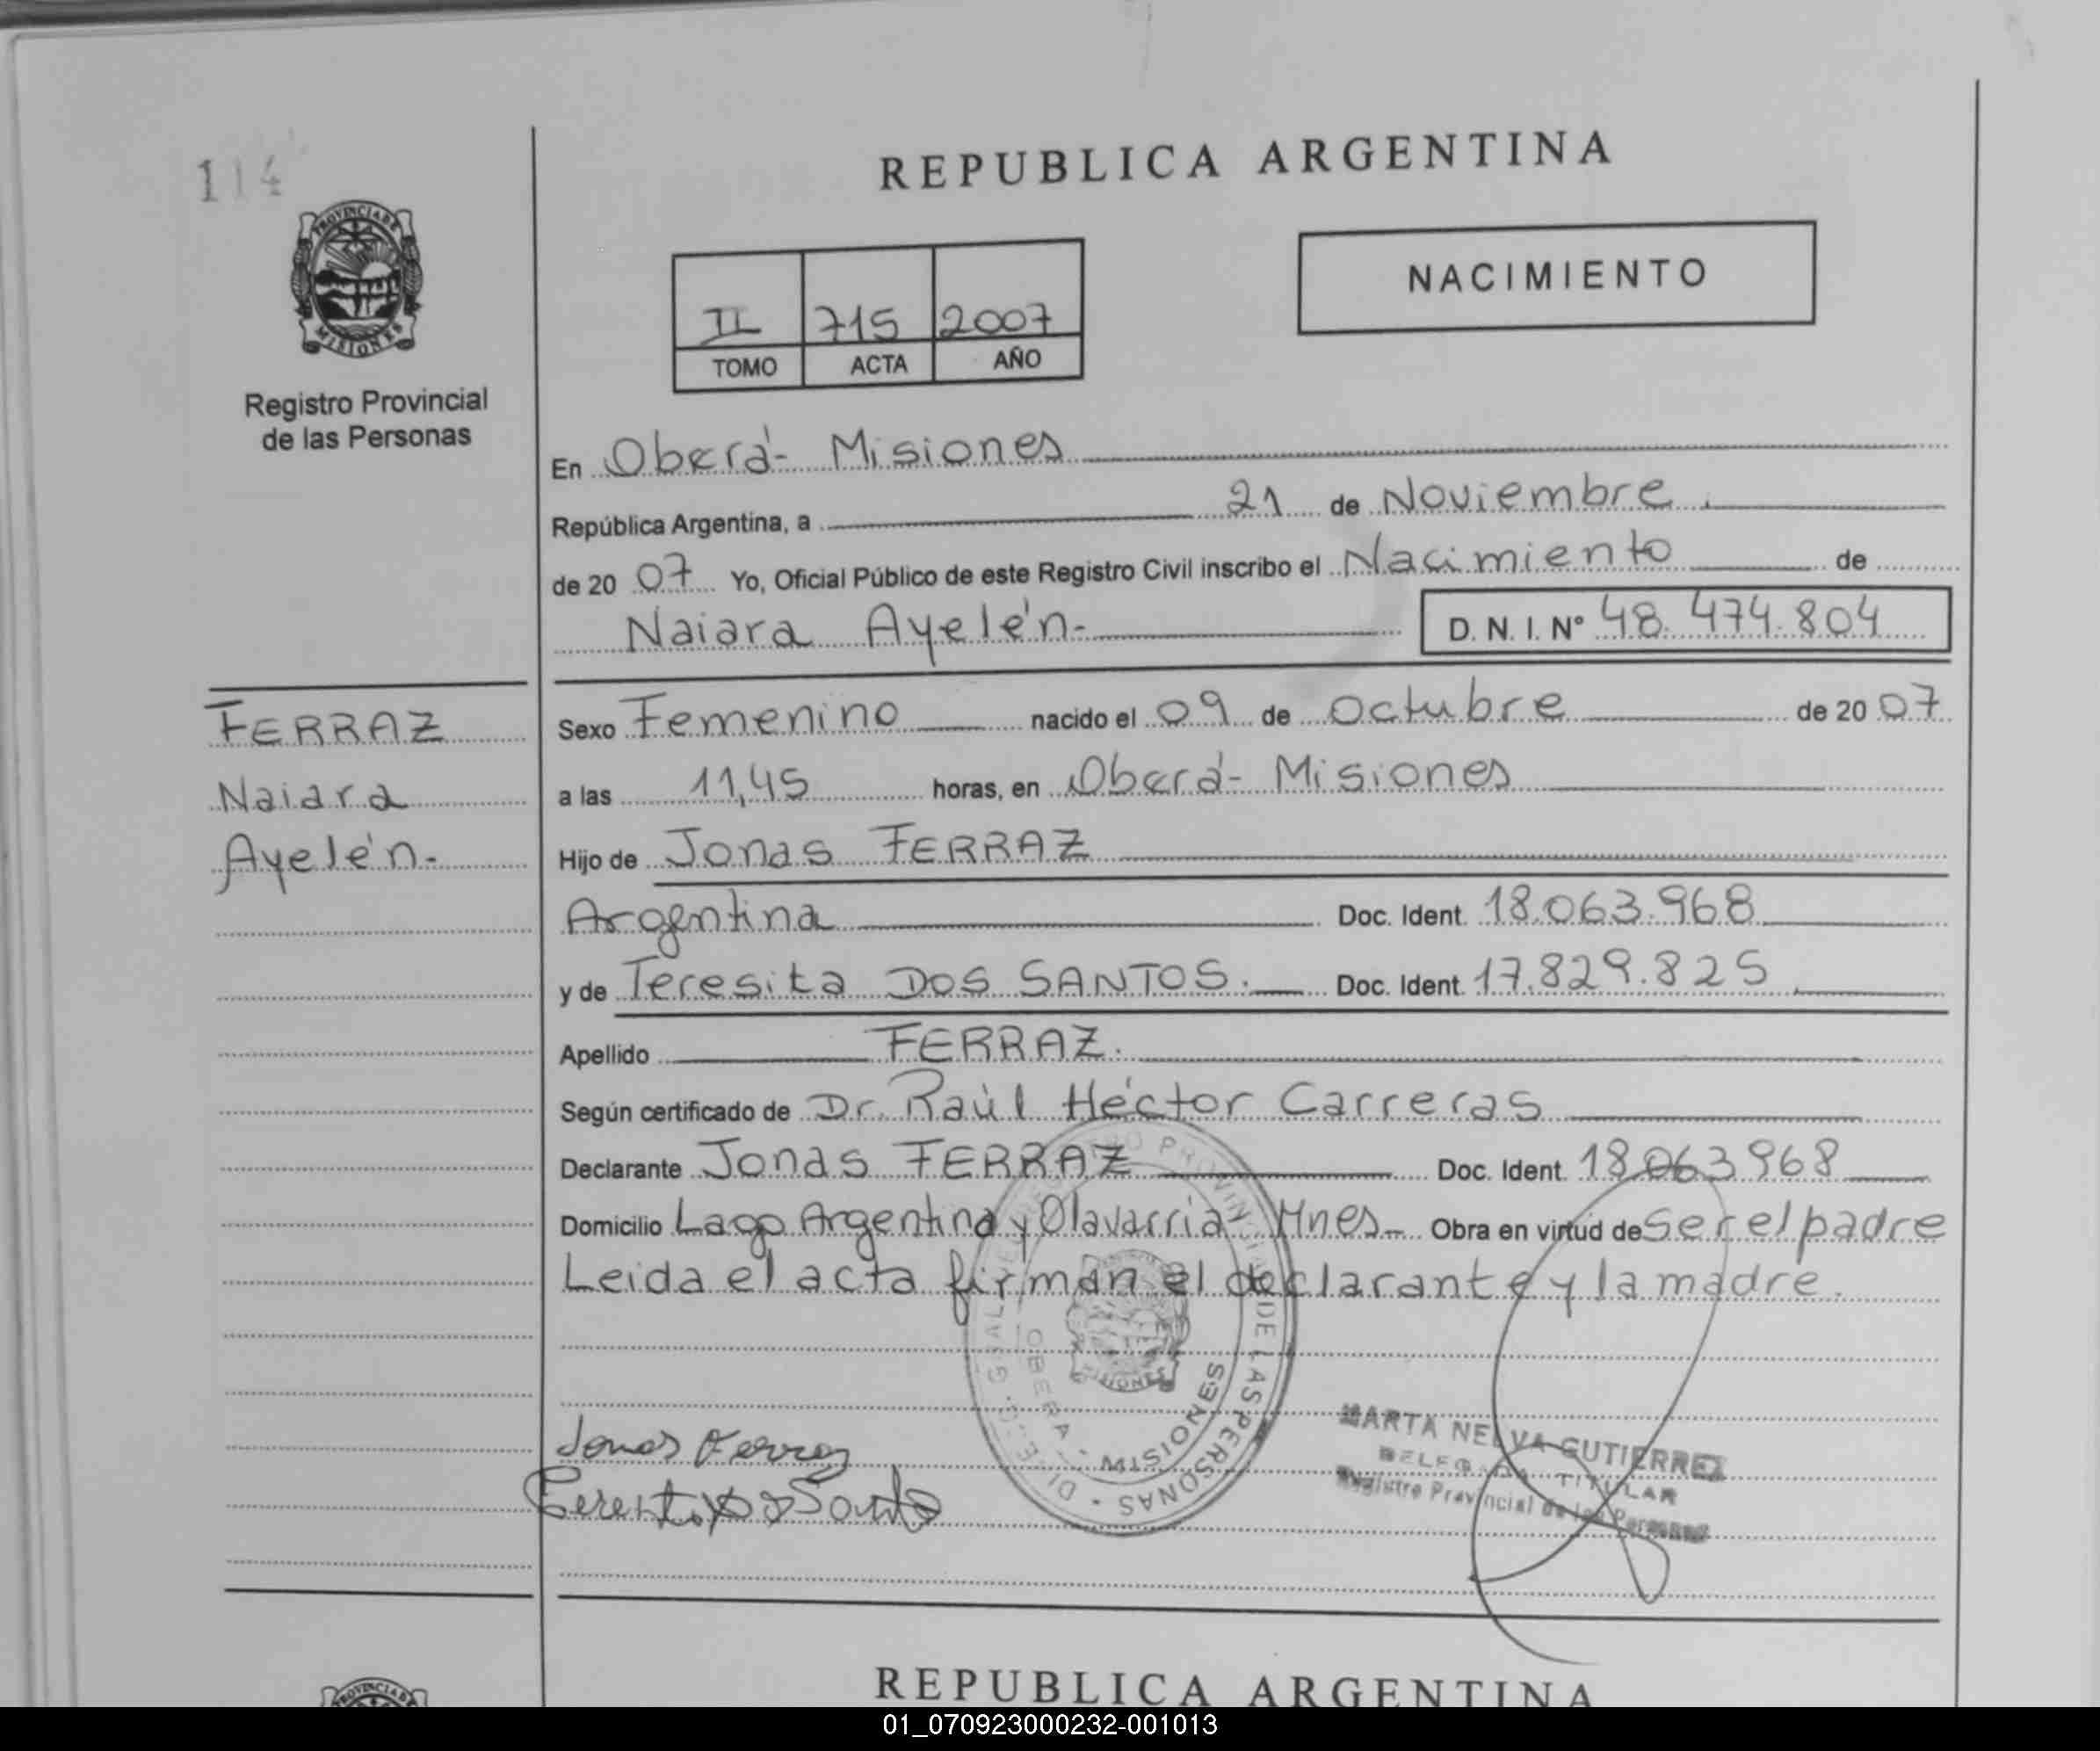 114
REPUBLICA ARGENTINA
PROVINCIA DE
MISIONES
Registro Provincial
de las Personas
II 715 2007
TOMO ACTA AÑO
NACIMIENTO
En Oberá - Misiones
República Argentina, a 21 de Noviembre.
de 20 07 Yo, Oficial Público de este Registro Civil inscribo el Nacimiento de
Naiara Ayelén.- D. N. I. N° 48.474.804
FERRAZ
Naiara
Ayelén.-
Sexo Femenino nacido el 09 de Octubre de 20 07
a las 11,45 horas, en Oberá - Misiones
Hijo de Jonas FERRAZ
Argentina Doc. Ident. 18.063.968
y de Teresita DOS SANTOS. Doc. Ident. 17.829.825
Apellido FERRAZ.
Según certificado de Dr. Raúl Héctor Carreras
Declarante Jonas FERRAZ Doc. Ident. 18.063.968
Domicilio Lago Argentina y Olavarria Mnes.- Obra en virtud de ser el padre
Leida el acta firman el declarante y la madre.
PROVINCIAL DE LAS PERSONAS
OBERA - MISIONES
Jonas Ferraz
MARTA NELVA GUTIERREZ
DELEGADA TITULAR
Registro Provincial de las Personas
REPUBLICA ARGENTINA
PROVINCIA DE
01_070923000232-001013